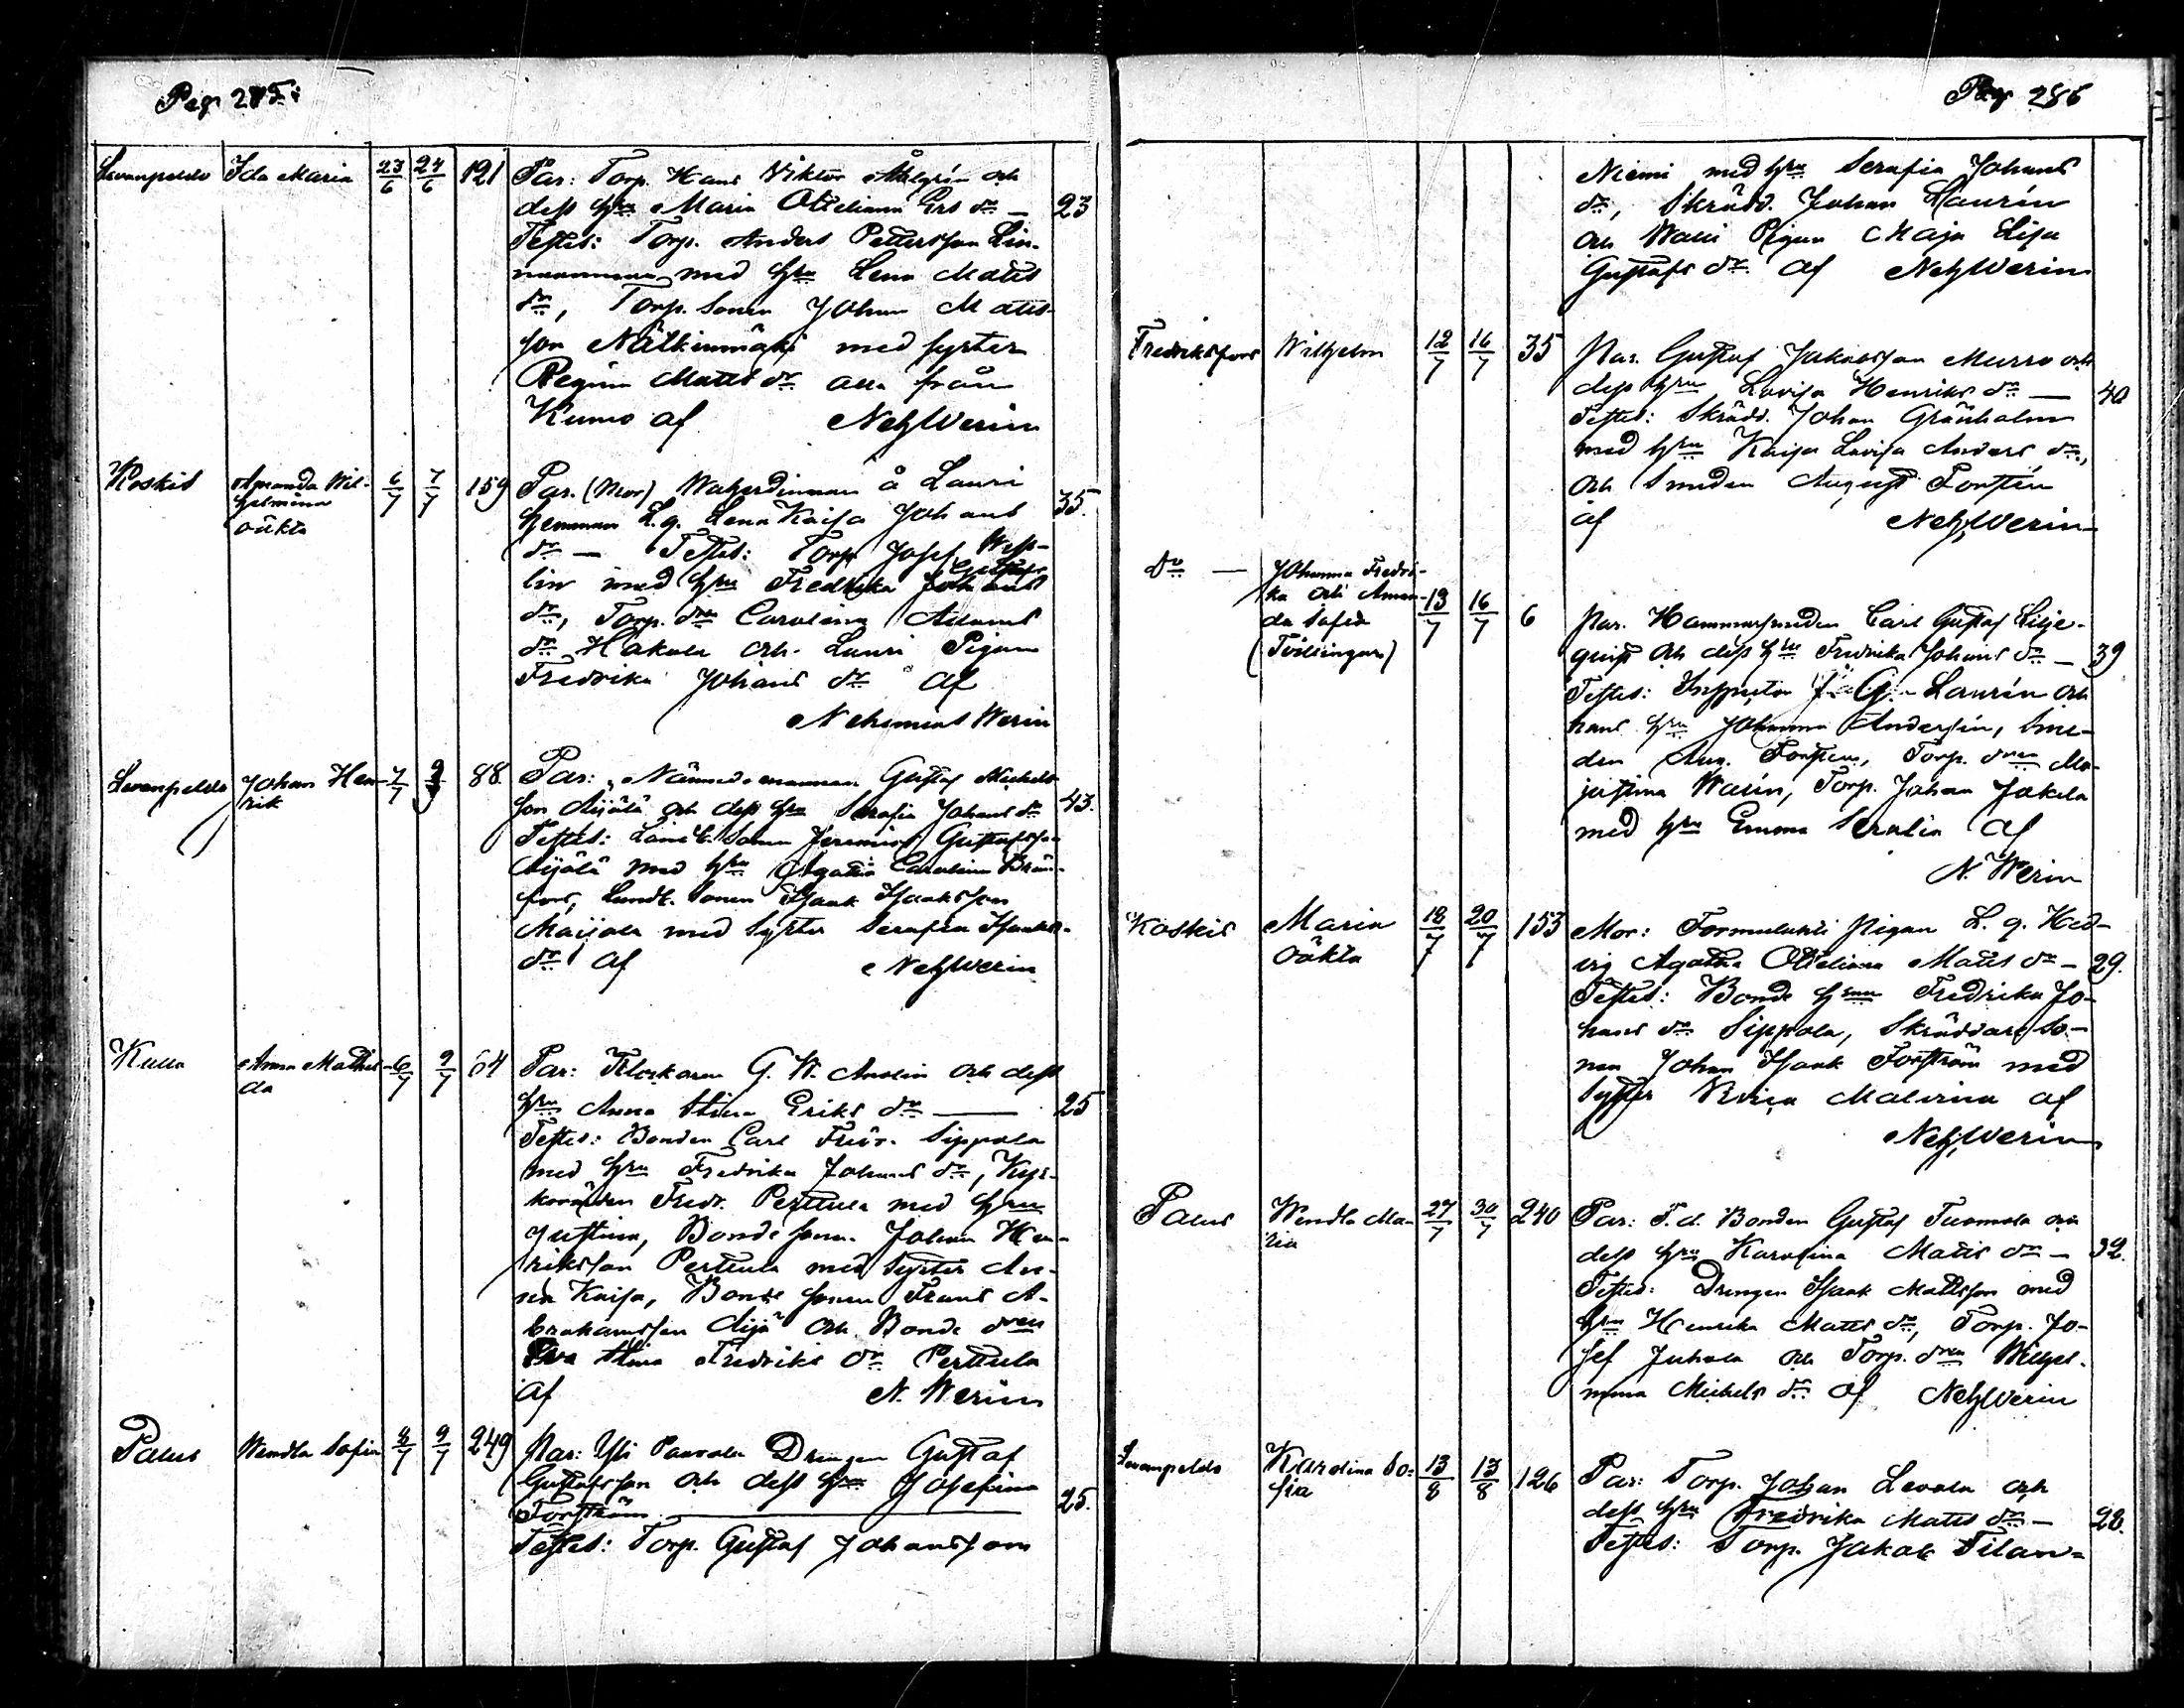 Pag 285
Levanpelto Ida Maria 23/6 24/6 121 Par: Torp. Hans Viktor Ahlgrén och
dess hru Maria Otteliana Ers dr — 23
Testes: Torp. Anders Pettersson Lin-
med hru Lena Matts
dr, Torp. sonen Johan Matts-
son Nälkinmäki med syster
Regina Matts dr alla från
Kumo af Neh Werin
Koskis Amanda Wil- 6/7 7/7 159 Par. (Mor) å Lauri
helmina hemman L. q. Lena Kaisa Johans 35.
oäkta dr — Testes: Torp Josef West-
lin med hru Fredrika Gustafs
dr, Torp. drn Carolina Adams
dr Hakola och Lauri Pigan
Fredrika Johans dr af
Nehemias Werin
Levanpelto Johan Hen- 7/7 9/7 88 Par: Nämndemannen Gustaf Michels
rik son Äijälä och dess hru Serafia Johans dr 43.
Testes: sonen Jeremias Gustafsson
Äijälä med hru Agata Carolina
Landb. sonen Isaak Isaksson
Maijala med Syster Serafia Isaaks-
dr af Neh Werin
Kulla Anna Mathil- 6/7 9/7 64 Par: Klockaren G. W. Anolin och dess
da hru Anna Stina Eriks dr — 25
Testes: Bonden Carl Fredr. Sippola
med hru Fredrika Johans dr, Kyr-
kovärden Fredr. Perttula med hru
Justina, Bonde sonen Johan Hen-
riksson Perttula med Syster An-
na Kaisa, Bonde sonen Frans A-
brahamsson Äijä och Bonde dren
Eva Stina Fredriks dr Perttula
af N. Werin
Palus Wendla Sofia 8/7 9/7 249 Par: Yli Paavola Drengen Gustaf
Gustafsson och dess hru Josefina 25.
Forström —
Testes: Torp. Gustaf Johansson
Pag 286
Niemi med hru Serafia Johans
dr, Skrädd. Johan Laurén
och Walli Pigan Maja Lisa
Gustafs dr af Neh Werin
Fredriksfors Wilhelm 12/7 16/7 35 Par. Gustaf Jakobsson Murro och
dess hru Lovisa Henriks dr — 40
Testes: Skrädd. Johan Grönholm
med hru Kaisa Lovisa Anders dr,
och Smeden August Forstén
af Neh Werin
do — Johanna Fredri-
ka och Aman- 13/7 16/7 6 Par. Hammarsmeden Carl Gustaf Lilje-
da Sofia quist och dess hru Fredrika Johans dr — 39
(Tvillingar) Testes: Inspector G. Laurén och
hans hru Johanna Andersin, Sme-
den Aug. Forstén, Torp. dren Ma-
jastina Warén, Torp. Johan Jokela
med hru Emma Seralia af
N. Werin
Koskis Maria 18/7 20/7 153 Mor: Pigan L. q. Hed-
oäkta vig Agatha Otteliana Matts dr — 29.
Testes: Bonde hrun Fredrika Jo-
hans dr Sippola, Skräddare So-
nen Johan Isaak Forström med
Syster Malvina af
Neh Werin
Palus Wendla Ma- 27/7 30/7 240 Par: F.d. Bonden Gustaf Tuomola och
ria dess hru Karolina Matts dr — 32.
Testes: Drengen Isaak Mattsson med
hru Henrika Matts dr, Torp. Jo-
sef Juhola och Torp. dren Wilhel-
mina Michels dr af Neh Werin
Levanpelto Karolina So- 13/8 13/8 126 Par: Torp. Johan Levola och
fia dess hru Fredrika Matts dr — 28.
Testes: Torp. Jakob Tilan-